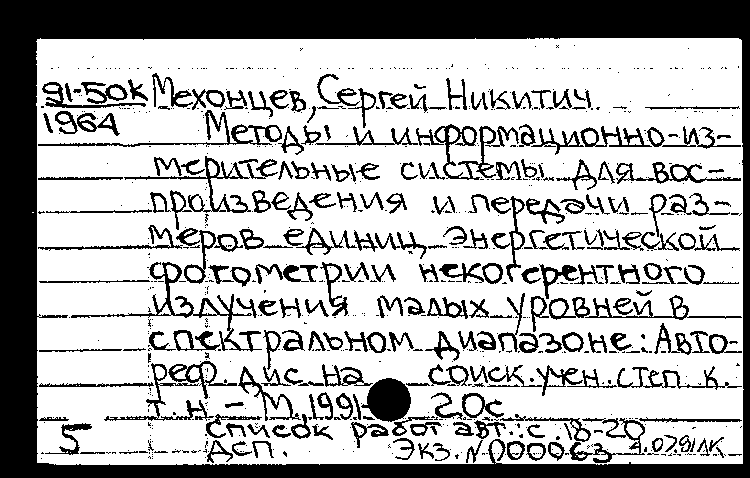 91-50к Мехонцев, Сергей Никитич.
1964 Методы и информационно-из-
мерительные системы для вос-
произведения и передачи раз-
меров единиц энергетической
фотометрии некогерентного
излучения малых уровней в
спектральном диапазоне: Авто-
реф. дис. на соиск. учен. степ. к.
т. н. – М, 1991- 20с.
5 Список работ авт.: с. 18-20
ДСП. Экз. N 000063 4.07.91ЛК